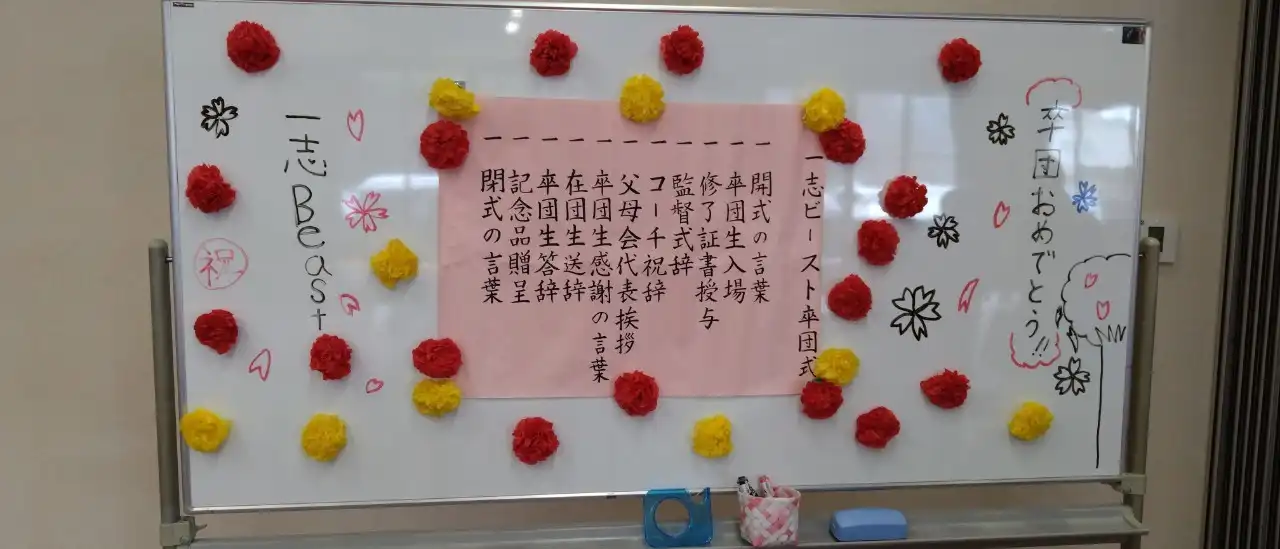 卒団おめでとう!!
一志ビースト卒団式
一 開式の言葉
一 卒団生入場
一 修了証書授与
一 監督式辞
一 コーチ祝辞
一 父母会代表挨拶
一 卒団生感謝の言葉
一 在団生送辞
一 卒団生答辞
一 記念品贈呈
一 閉式の言葉
一志Beast
祝